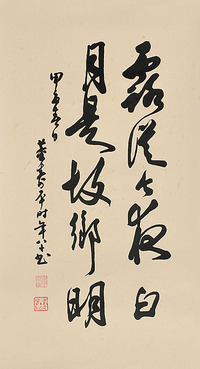 露從今夜白
月是故鄉明
甲子春日
董壽平時年八十書